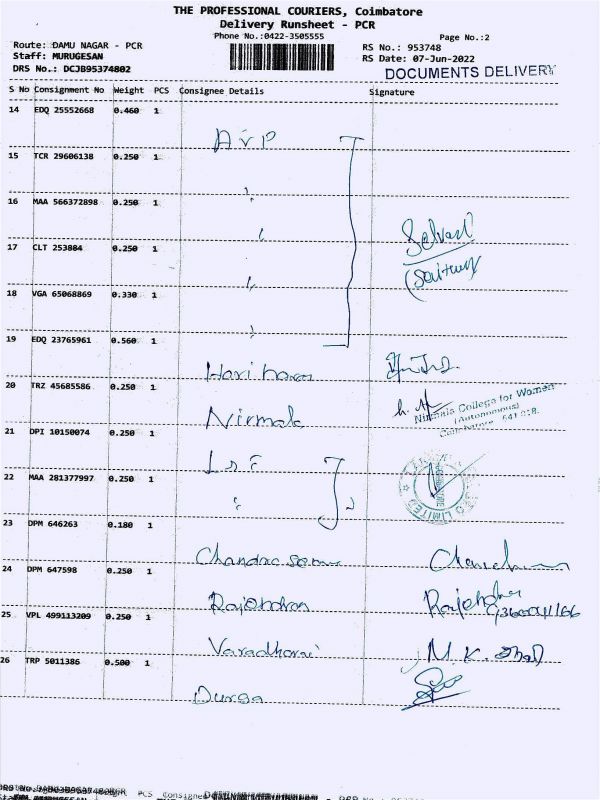 THE PROFESSIONAL COURIERS, Coimbatore
Delivery Runsheet - PCR
Phone No.:0422-3505555
Page No.:2
Route: DAMU NAGAR - PCR
RS No.: 953748
Staff: MURUGESAN
RS Date: 07-Jun-2022
DRS No.: DCJB95374802
DOCUMENTS DELIVERY
S No Consignment No Weight PCS Consignee Details Signature
14 EDQ 25552668 0.460 1
15 TCR 29606138 0.250 1
16 MAA 566372898 0.250 1
17 CLT 253884 0.250 1
18 VGA 65068869 0.330 1
19 EDQ 23765961 0.560 1
Hari haran
20 TRZ 45685586 0.250 1
Nirmala College for Women
(Autonomous)
Coimbatore - 641 018.
Nirmala
21 DPI 10150074 0.250 1
22 MAA 281377997 0.250 1
LIMITED
23 DPM 646263 0.180 1
24 DPM 647598 0.250 1
Rajendran Rajendran
25 VPL 499113209 0.250 1
Varadharaj M.K.
26 TRP 5011386 0.500 1
Durga